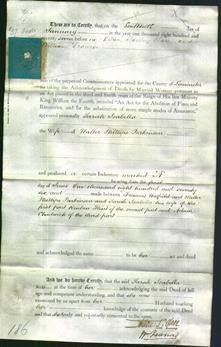 These are to Certify, that on the Twelfth Day of
January in the year one thousand eight hundred and
seventy seven before us
two of the perpetual Commissioners appointed for the County of Lancaster
for taking the Acknowledgments of Deeds by Married Women pursuant to
an Act passed in the third and fourth years of the Reign of His late Majesty
King William the Fourth, intituled "An Act for the Abolition of Fines and
Recoveries, and for the substitution of more simple modes of Assurance,"
appeared personally Sarah Isabella
the Wife of Walter Phillips Parkinson
and produced a certain Indenture marked A
bearing date the first
day of June One thousand eight hundred and seventy
six and made between Frances Hayfield and Walter
Phillips Parkinson and Sarah Isabella his wife of the
first part of the second part and
of the third part
and acknowledged the same to be her act and deed
And we do hereby Certify, that the said Sarah Isabella
was, at the time of her acknowledging the said Deed of full
age and competent understanding, and that she was
examined by us apart from her Husband touching
her knowledge of the contents of the said Deed
and that she freely and voluntarily consented to the same.
186